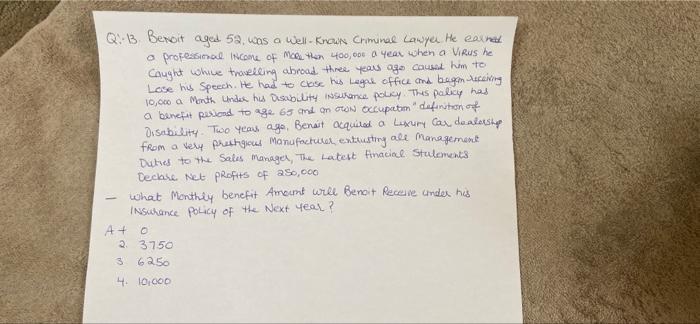 Q:-13. Benoit aged 52, was a well-known Criminal Lawyer. He earned
a professional income of more then 400,000 a year when a virus he
caught while travelling abroad three years ago caused him to
Lose his speech. He had to close his Legal office and began receiving
10,000 a month under his Disability insurance policy. This policy has
a benefit period to age 65 and an own occupation" definition of
Disability. Two years ago, Benoit acquired a Luxury Car dealership
from a very prestigious Manufacturer, entrusting all Management
Duties to the Sales Manager, The Latest finacial Statements
Declare Net profits of 250,000
– what Monthly benefit Amount will Benoit Receive under his
Insurance Policy of the Next year?
A + 0
2. 3750
3 6250
4. 10,000